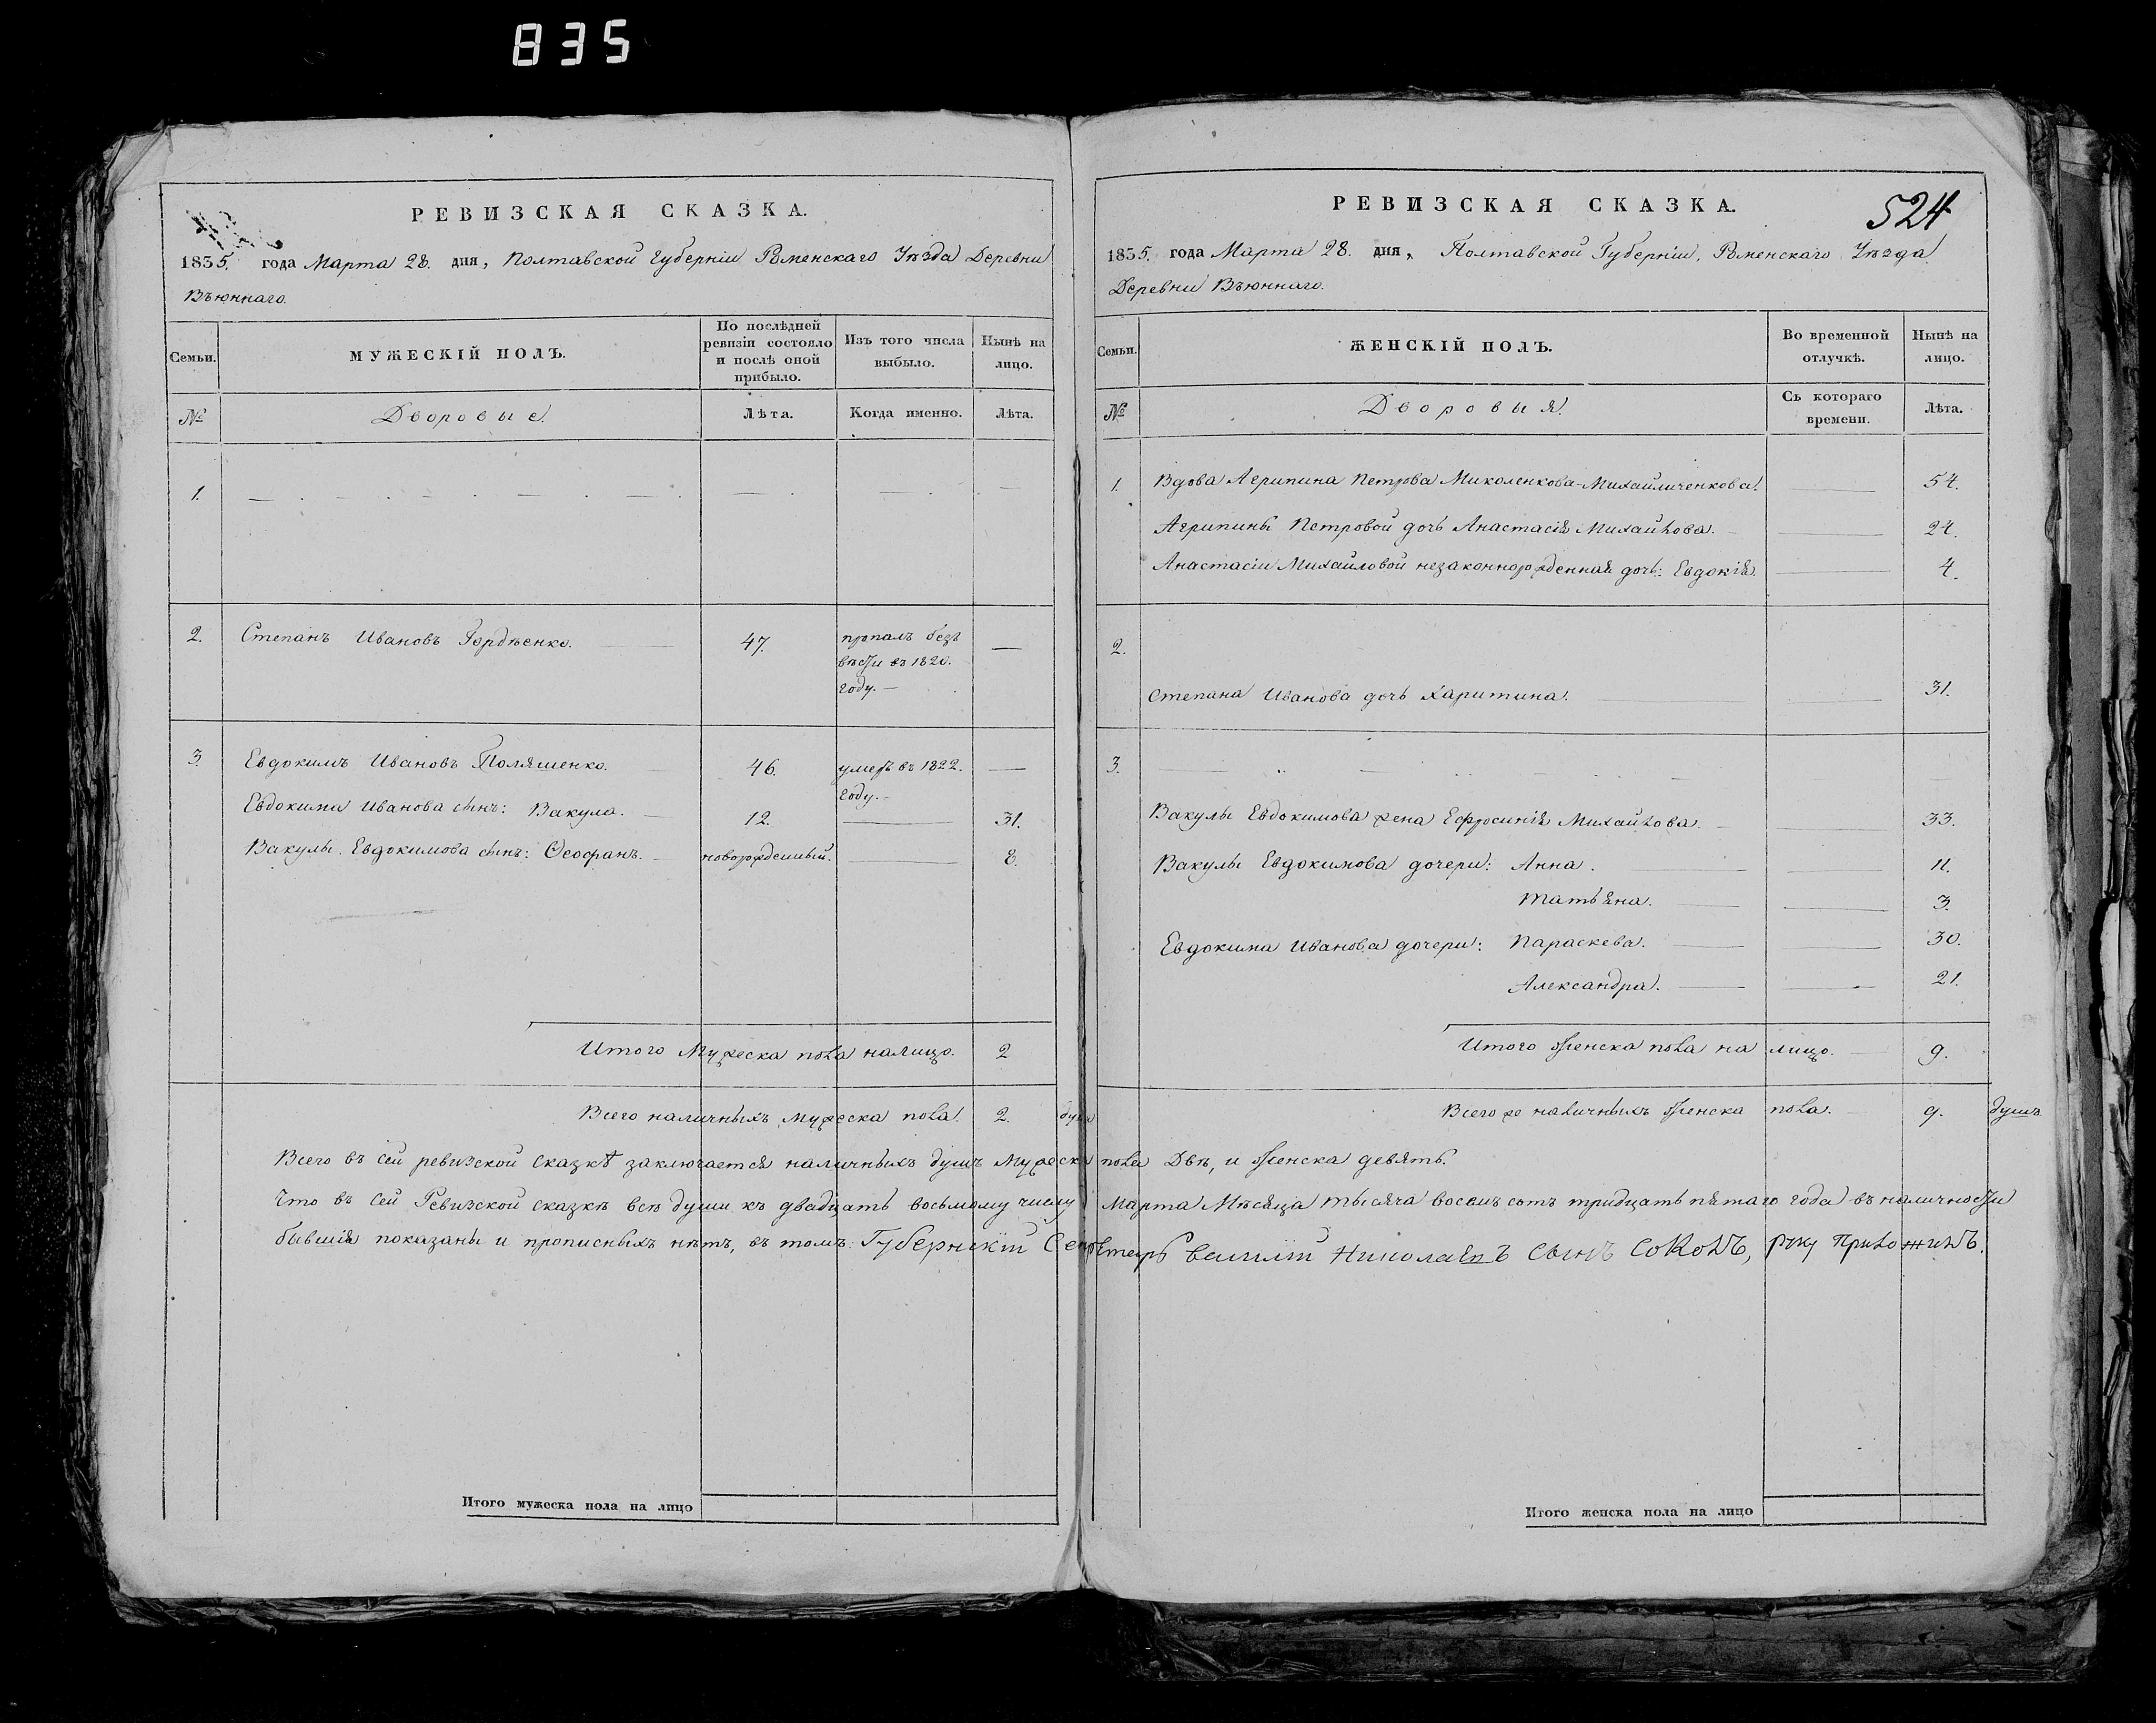 835
РЕВИЗСКАЯ СКАЗКА.
1835. года Марта 28. дня, Полтавской Губерніи Роменскаго Уѣзда Деревни
Вьюннаго.
Семьи.
МУЖЕСКІЙ ПОЛЪ.
По послѣдней
ревизіи состояло
и послѣ оной
прибыло.
Изъ того числа
выбыло.
Нынѣ на
лицо.
№
Дворовые.
Лѣта.
Когда именно.
Лѣта.
1.
2. Степанъ Ивановъ Гордѣенко. 47. пропалъ безъ
вѣсти въ 1820.
году. —
3. Евдокимъ Ивановъ Поляшенко. 46. умеръ въ 1822.
году. —
Евдокима Иванова сынъ: Вакула. 12. 31.
Вакулы Евдокимова сынъ: Ѳеофанъ. новорожденный. 8.
Итого Мужеска пола налицо. 2
Всего наличныхъ мужеска пола. 2. душъ
РЕВИЗСКАЯ СКАЗКА.
524
1835. года Марта 28. дня, Полтавской Губерніи, Роменскаго Уѣзда
Деревни Вьюннаго.
Семьи.
ЖЕНСКІЙ ПОЛЪ.
Во временной
отлучкѣ.
Нынѣ на
лицо.
№
Дворовыя.
Съ котораго
времени.
Лѣта.
1. Вдова Агрипина Петрова Миколенкова-Михайличенкова. 54.
Агрипины Петровой дочь Анастасія Михайлова. 24.
Анастасіи Михайловой незаконнорожденная дочь: Евдокія. 4.
2.
Степана Иванова дочь Харитина. 31.
3.
Вакулы Евдокимова жена Ефросинія Михайлова. 33.
Вакулы Евдокимова дочери: Анна. 11.
Татьяна. 3.
Евдокима Иванова дочери: Параскева. 30.
Александра. 21.
Итого Женска пола на лицо. 9.
Всего же наличныхъ Женска пола. 9. душъ
Всего въ сей ревизской сказкѣ заключается наличныхъ душъ Мужеска пола Двѣ, и Женска девять.
Что въ сей Ревизской сказкѣ всѣ души къ двадцать восьмому числу Марта Мѣсяца тысяча восемь сотъ тридцать пятаго года въ наличности
бывшія показаны и прописныхъ нѣтъ, въ томъ: Губернскій Секретарь василій Николаевъ Сынъ Соколъ, руку приложилъ.
Итого мужеска пола на лицо
Итого женска пола на лицо